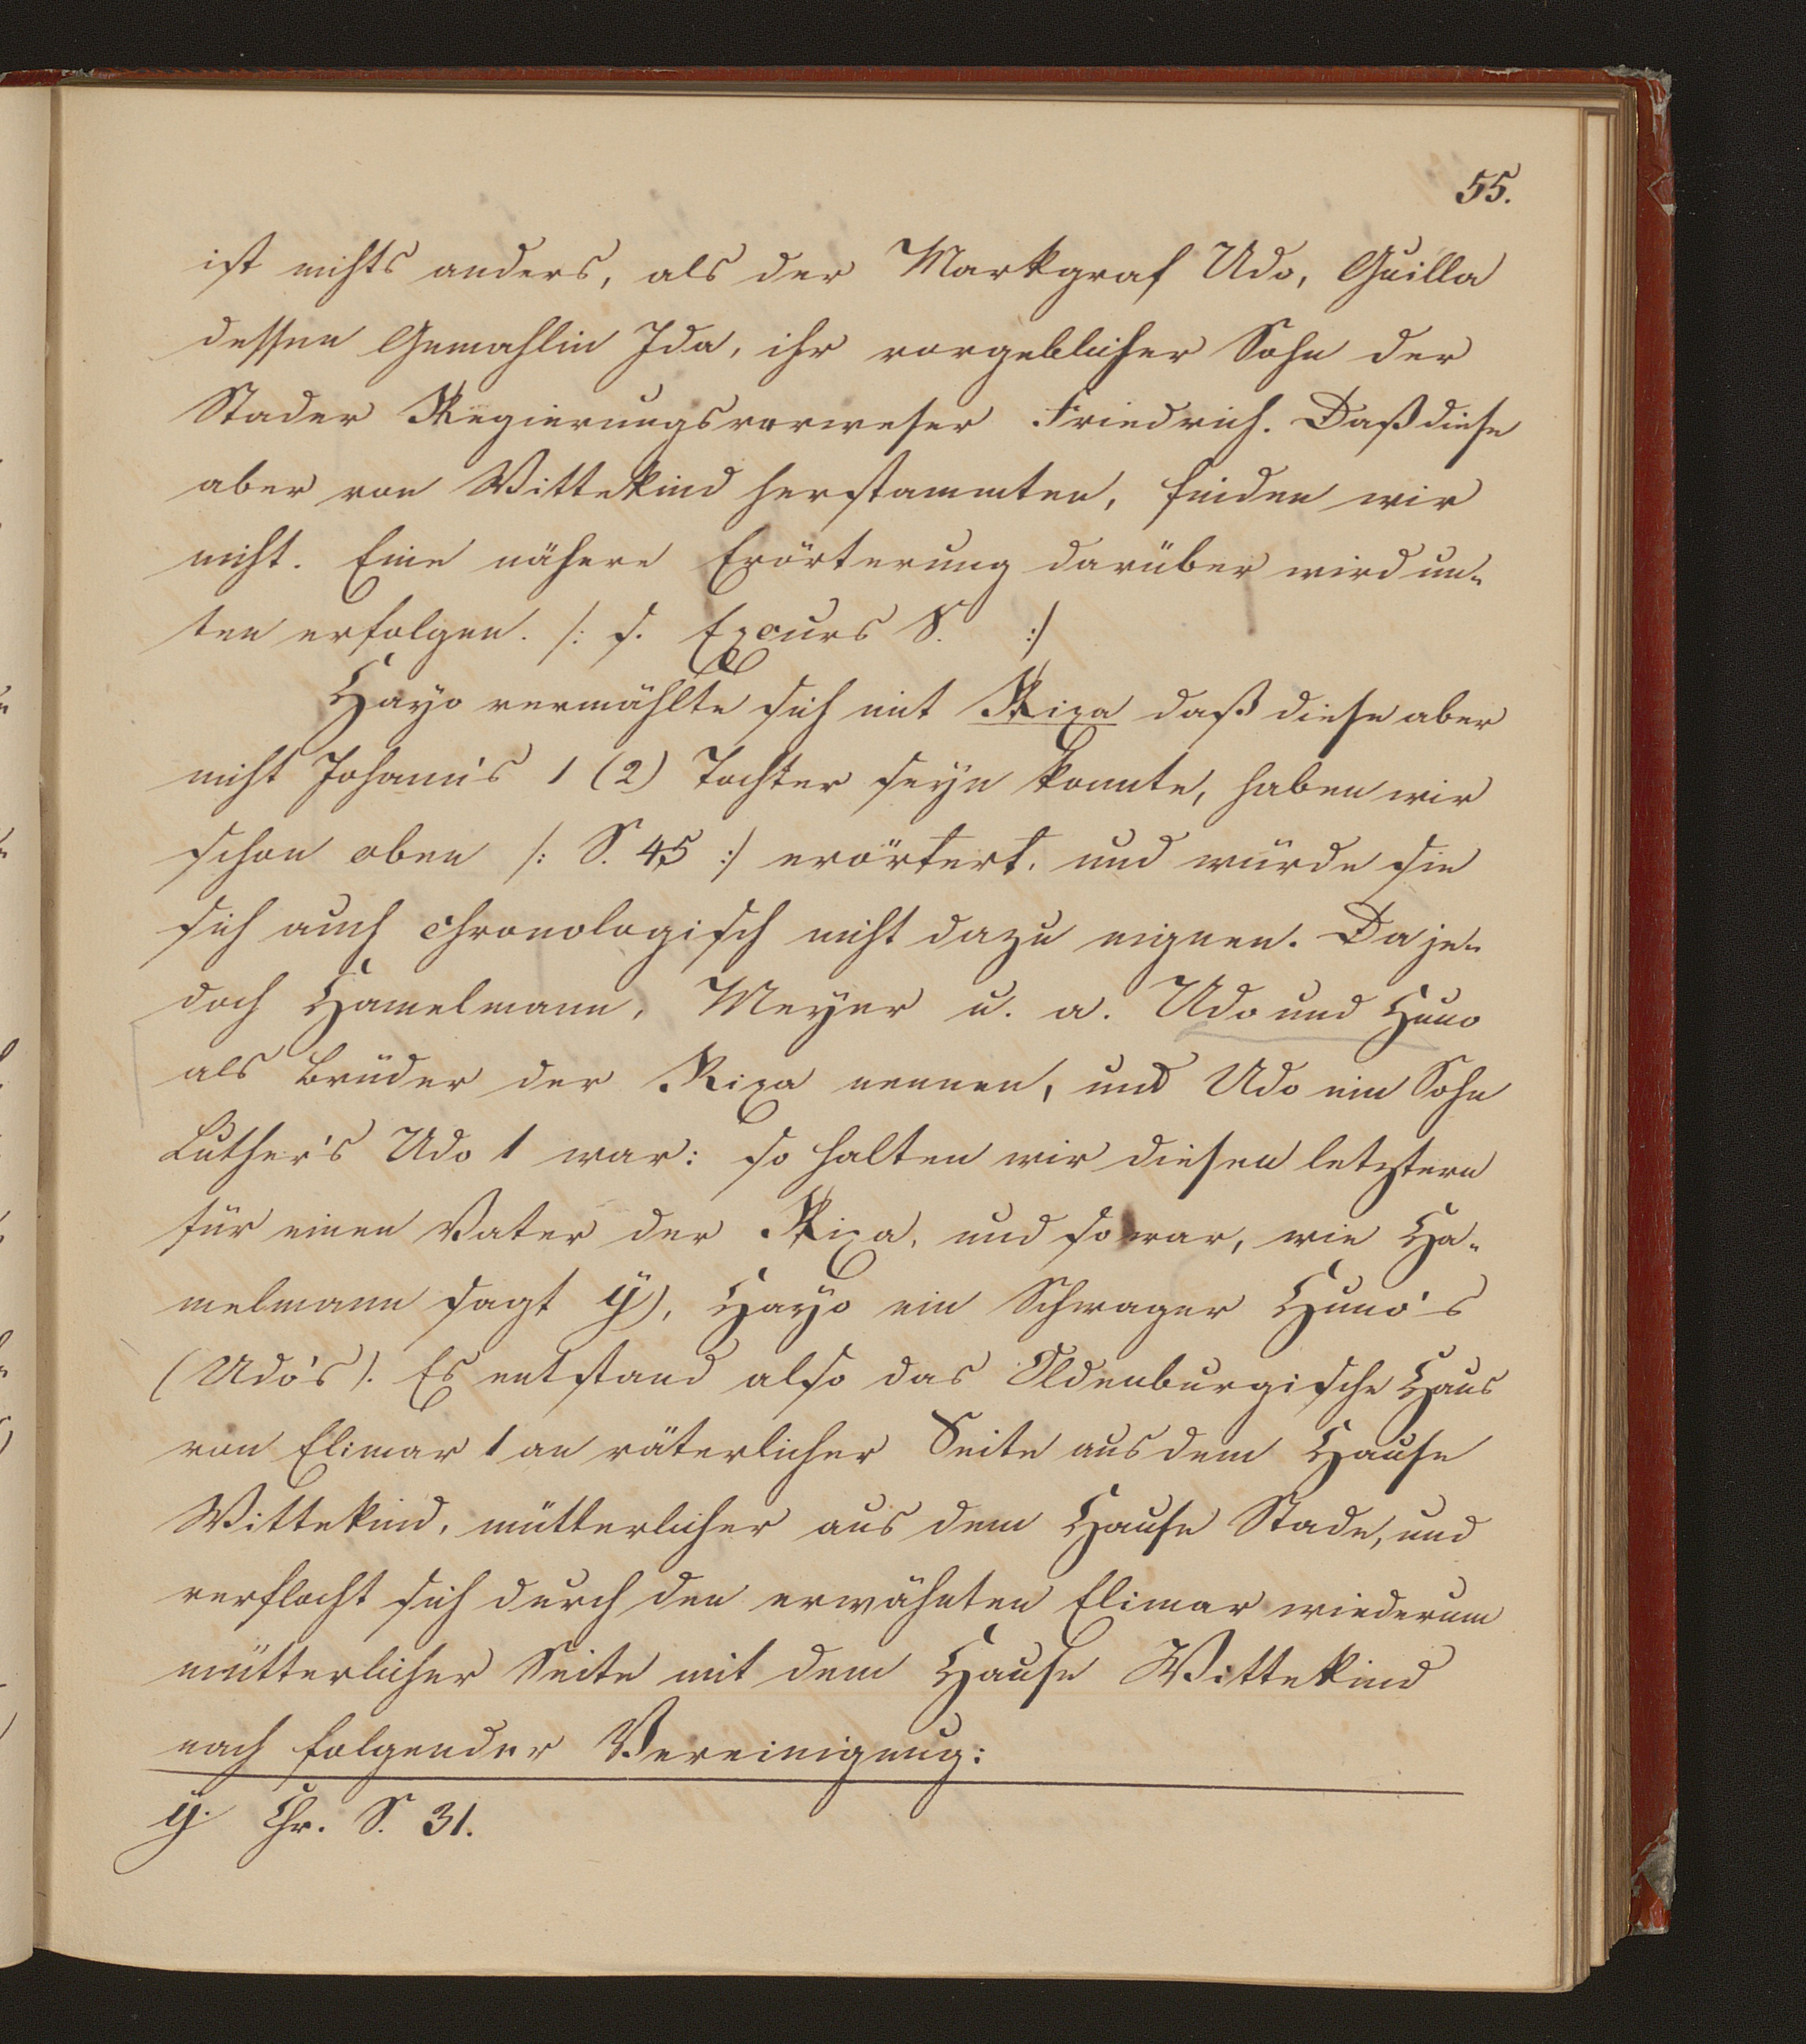 55.
ist nichts anders, als der Markgraf Udo, Guilla
dessen Gemahlin Ida, ihr vorgeblicher Sohn der
Stader Regierungsverweser Friedrich. Daß diese
aber von Wittekind herstammten, finden wir
nicht. Eine nähere Erörterung darüber wird un-
ten erfolgen. /: s. Excurs S. :/
Hayo vermählte sich mit Rixa daß diese aber
nicht Johann's 1 (2) Tochter seyn konnte, haben wir
schon oben /: S. 45 :/ erörtert, und würde sie
sich auch chronologisch nicht dazu eignen. Da je-
doch Hamelmann, Meyer u. a. Udo und Huno
als Brüder der Rixa nennen, und Udo ein Sohn
Luther's Udo 1 war: so halten wir diesen letztern
für einen Vater der Rixa, und so war, wie Ha-
melmann sagt ÿ), Hayo ein Schwager Huno's
(Udo's). Es entstand also das Oldenburgische Haus
von Elimar 1 an väterlicher Seite aus dem Hause
Wittekind, mütterlicher aus dem Hause Stade, und
verflocht sich durch den erwähnten Elimar wiederum
mütterlicher Seite mit dem Hause Wittekind
nach folgender Vereinigung:
ÿ. Chr. S. 31.